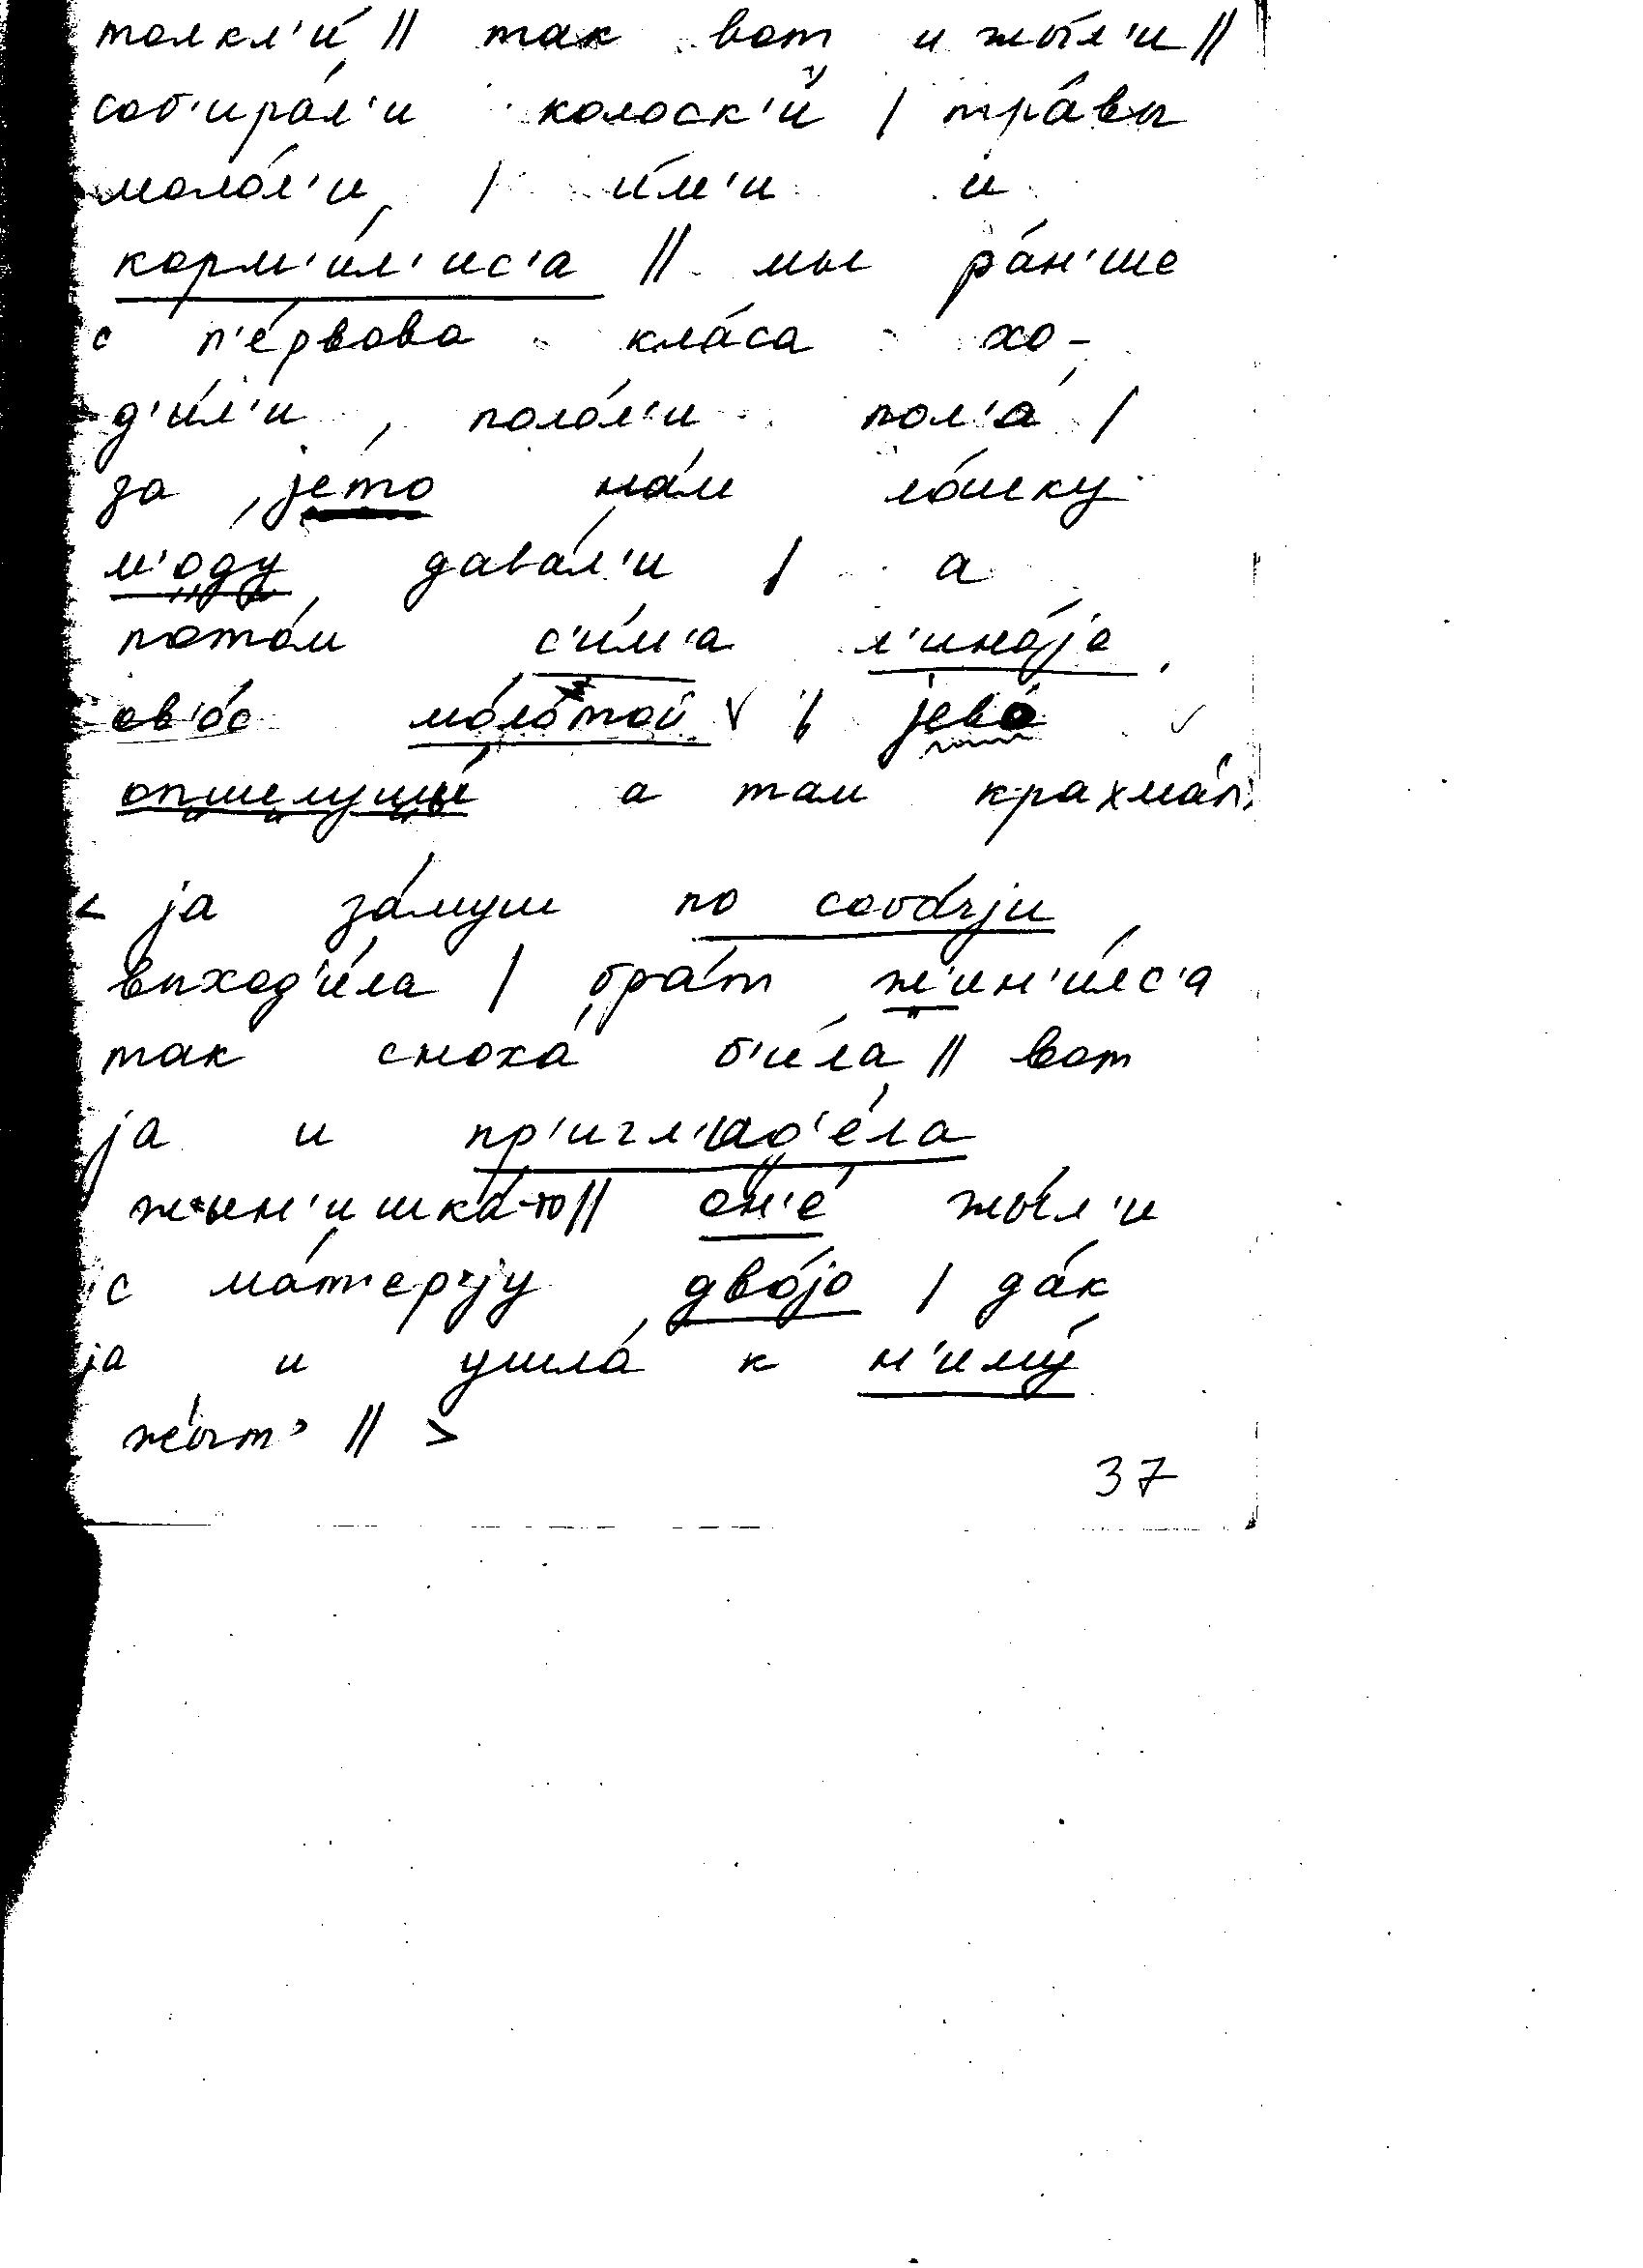 толкл'и́ || так вот и жы́л'и ||
соб'ира́л'и колоск'и́ | тра́вы
моло́л'и, | и́м'и и
корм'и́л'ис'а || мы ра́н'ше
с п'е́рвова кла́са хо-
д'и́л'и, поло́л'и пол'а́ |
за је́то на́м ло́шку
м'о́ду дава́л'и | а
пото́м с'и́м'а л'ина́ја
ов'о́с мо́лотой | јево́
опшелушы́ а там крахма́л
< ја за́муш по сво́јји
выход'и́ла | бра́т ж'ин'и́лс'а
так сноха́ б'и́ла || вот
ја и пр'игл'ад'е́ла
жын'ишка́-то || он'е́ жы́л'и
с ма́т'ерјју дво́јо | да́к
ја и ушла́ к н'иму́
жы́т' || >
37